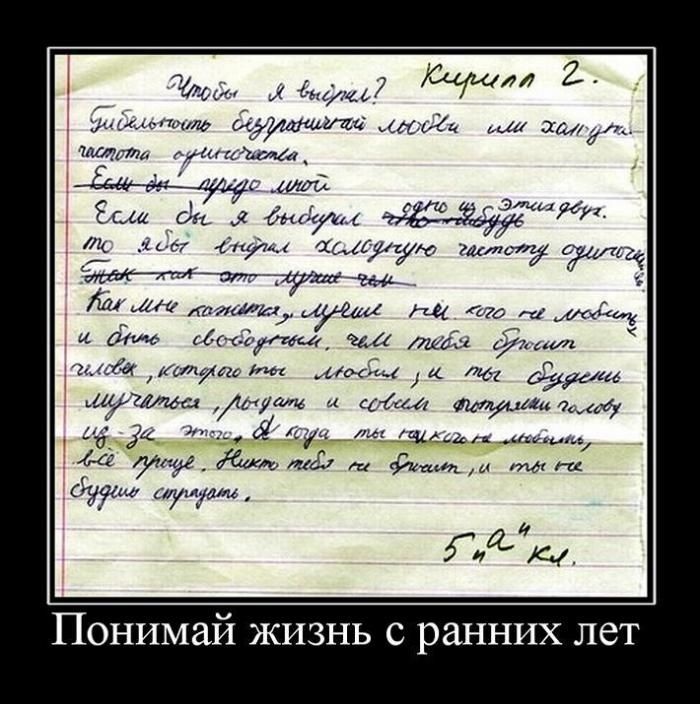 Чтобы я выбрал? Кирилл Г.
Гибельность безграничной любви или холодная
частота одиночества.
Если бы передо мной
Если бы я выбирал что-нибудь одно из этих двух.
то я бы выбрал холодную частоту одиночества.
Так как это лучше чем
Как мне кажется, лучше ни кого не любить,
и быть свободным, чем тебя бросит
человек, которого ты любил, и ты будешь
мучаться, рыдать и совсем потеряеш голову
из-за этого. А когда ты ни кого не любишь,
всё проще. Никто тебя не бросит, и ты не
будешь страдать.
5 "а" кл.
Понимай жизнь с ранних лет